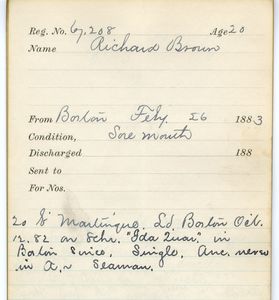 Reg. No. 67,208 Age 20
Name Richard Brown
From Boston Feby 26 1883
Condition, Sore mouth
Discharged 188
Sent to
For Nos.
20 b Martinique. Ld. Boston Oct.
12. 82 on Schr. "Ida in
Boston Since, Single, Anc. never
in A, Seaman.